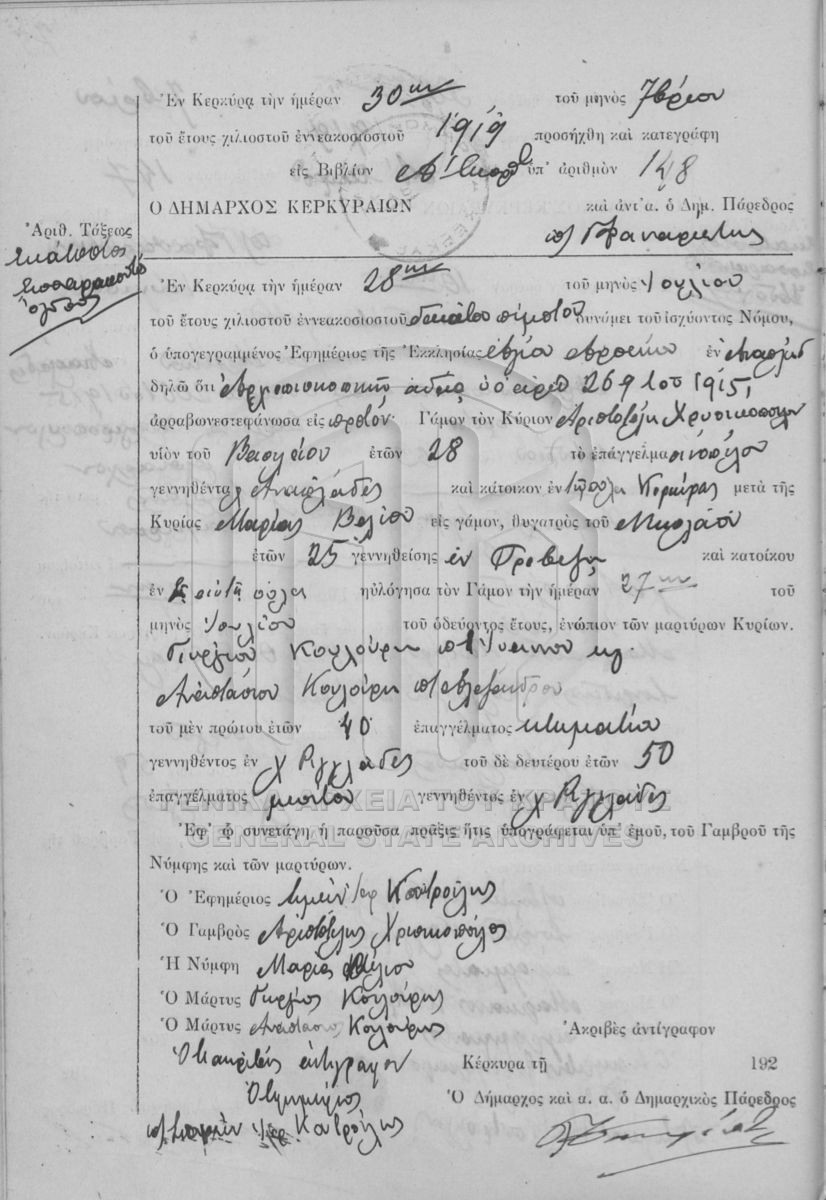 Ἐν Κερκύρᾳ τὴν ἡμέραν 30ην τοῦ μηνὸς 7βρίου
τοῦ ἔτους χιλιοστοῦ ἐννεακοσιοστοῦ 1919 προσήχθη καὶ κατεγράφη
εἰς Βιβλίον ὑπ' ἀριθμὸν 148
Ο ΔΗΜΑΡΧΟΣ ΚΕΡΚΥΡΑΙΩΝ καὶ ἀντ' α. ὁ Δημ. Πάρεδρος
Ἀριθ. Τάξεως
ἑκατοστὸς
τεσσαρακοστὸς
ὄγδοος
Ἐν Κερκύρᾳ τὴν ἡμέραν 28ην τοῦ μηνὸς Ἰουλίου
τοῦ ἔτους χιλιοστοῦ ἐννεακοσιοστοῦ δεκάτου πέμπτου δυνάμει τοῦ ἰσχύοντος Νόμου,
ὁ ὑπογεγραμμένος Ἐφημέριος τῆς Ἐκκλησίας Ἁγίου ἐν
δηλῶ ὅτι Ἀρχιεπισκοπικῇ ἀδείᾳ ὑπ' ἀριθ 269 τοῦ 1915,
ἀρραβωνεστεφάνωσα εἰς πρῶτον Γάμον τὸν Κύριον Ἀριστοτέλη Χρυσικόπουλον
υἱὸν τοῦ Βασιλείου ἐτῶν 28 τὸ ἐπάγγελμα οἰνοπώλου
γεννηθέντα χ Ἀναπλάδες καὶ κάτοικον ἐν πόλει Κερκύρας μετὰ τῆς
Κυρίας Μαρίας Βελίου εἰς γάμον, θυγατρὸς τοῦ Νικολάου
ἐτῶν 25 γεννηθείσης ἐν Πρεβέζῃ καὶ κατοίκου
ἐν ταύτῃ πόλει ηὐλόγησα τὸν Γάμον τὴν ἡμέραν 27ην τοῦ
μηνὸς Ἰουλίου τοῦ ὁδεύοντος ἔτους, ἐνώπιον τῶν μαρτύρων Κυρίων.
Γεωργίου Κουλούρη τοῦ Ἰωάννου κ
Ἀναστασίου Κουλούρη τοῦ Ἀλεξάνδρου
τοῦ μὲν πρώτου ἐτῶν 40 ἐπαγγέλματος κτηματίου
γεννηθέντος ἐν χ Ριγγλάδες τοῦ δὲ δευτέρου ἐτῶν 50
ἐπαγγέλματος μεσίτου γεννηθέντος ἐν χ Ριγγλάδες
ΓΕΝΙΚΑ ΑΡΧΕΙΑ ΤΟΥ ΚΡΑΤΟΥΣ
Ἐφ' ᾧ συνετάγη ἡ παροῦσα πρᾶξις ἥτις ὑπογράφεται ὑπ' ἐμοῦ, τοῦ Γαμβροῦ τῆς
GENERAL STATE ARCHIVES
Νύμφης καὶ τῶν μαρτύρων.
Ὁ Ἐφημέριος ἱερ Κατρούλης
Ὁ Γαμβρὸς Ἀριστοτέλης Χρισικόπουλος
Ἡ Νύμφη Μαρία Βέλιου
Ὁ Μάρτυς Γεώργιος Κουλούρης
Ὁ Μάρτυς Ἀναστάσιος Κουλούρης Ἀκριβὲς ἀντίγραφον
ἀκριβὲς ἀντίγραφον Κέρκυρα τῇ 192
Ὁ Ἐφημέριος Ὁ Δήμαρχος καὶ α. α. ὁ Δημαρχικὸς Πάρεδρος
ἱερ. Κατρούλης